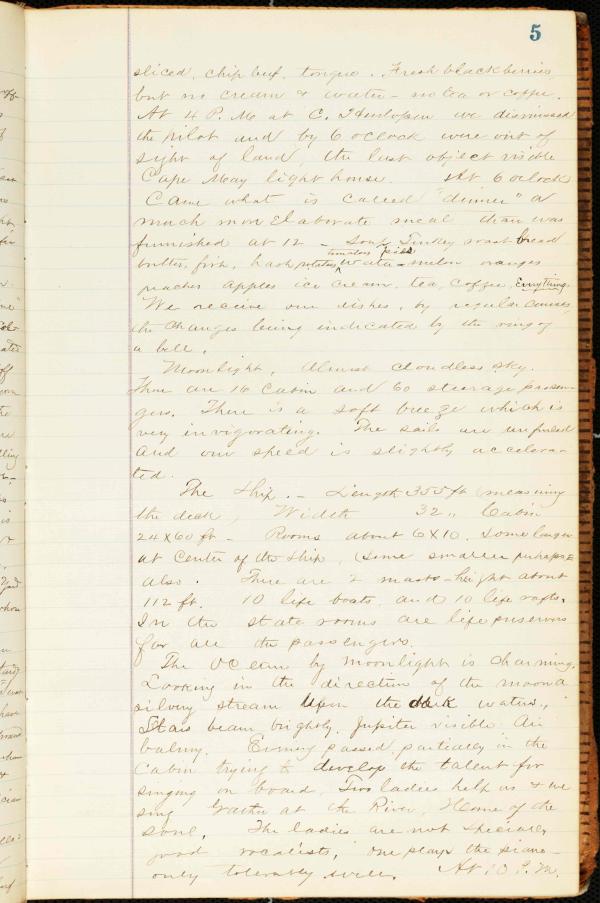 5
sliced, chip beef, tongue. Fresh blackberries
but no cream & water - no tea or coffee.
At 4 P.M. at C. Henlopen we dismissed
the pilot and by 6 oclock were out of
sight of land, the last object visible
Cape May light house At 6 oclock
Came what is called "dinner" a
much more Elaborate meal than was
furnished at 12 - Soup Turkey roast bread
tomatoes pies
butter, fish, hash potatoes water-melon oranges
peaches apples ice cream, tea, coffee, Everything.
We receive our dishes, by regular courses,
the changes being indicated by the ring of
a bell.
Moonlight, Almost cloudless sky.
There are 16 Cabin and 60 steerage passen-
gers. There is a soft breeze which is
very invigorating. The sails are unfurled
and our speed is slightly accelera-
ted.
The Ship. - Length 355 ft (measuring
the deck, Width 32 " Cabin
24 x 60 ft - Rooms about 6 x 10, Some larger
at Center of the Ship, (Some smaller perhaps
also. There are 2 masts - height about
112 ft. 10 life boats, and 10 life rafts.
In the state rooms are life preservers
for all the passengers.
The Ocean by moonlight is charming.
Looking in the direction of the moon a
silvery stream upon the dark waters.
Stars beam brightly. Jupiter visible Air
balmy. Evening passed, partially in the
Cabin trying to develop the talent for
singing on board, Two ladies help us & we
sing Gather at the River, Home of the
Soul, The ladies are not specially
good vocalists, one plays the piano -
only tolerably well. At 10 P.M.